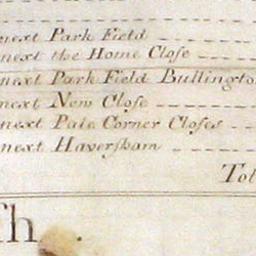 next Park Field
next the Home Close
next Park Field Bullington
next New Close
next Pale Corner Closes
next Haversham
Tol
sh